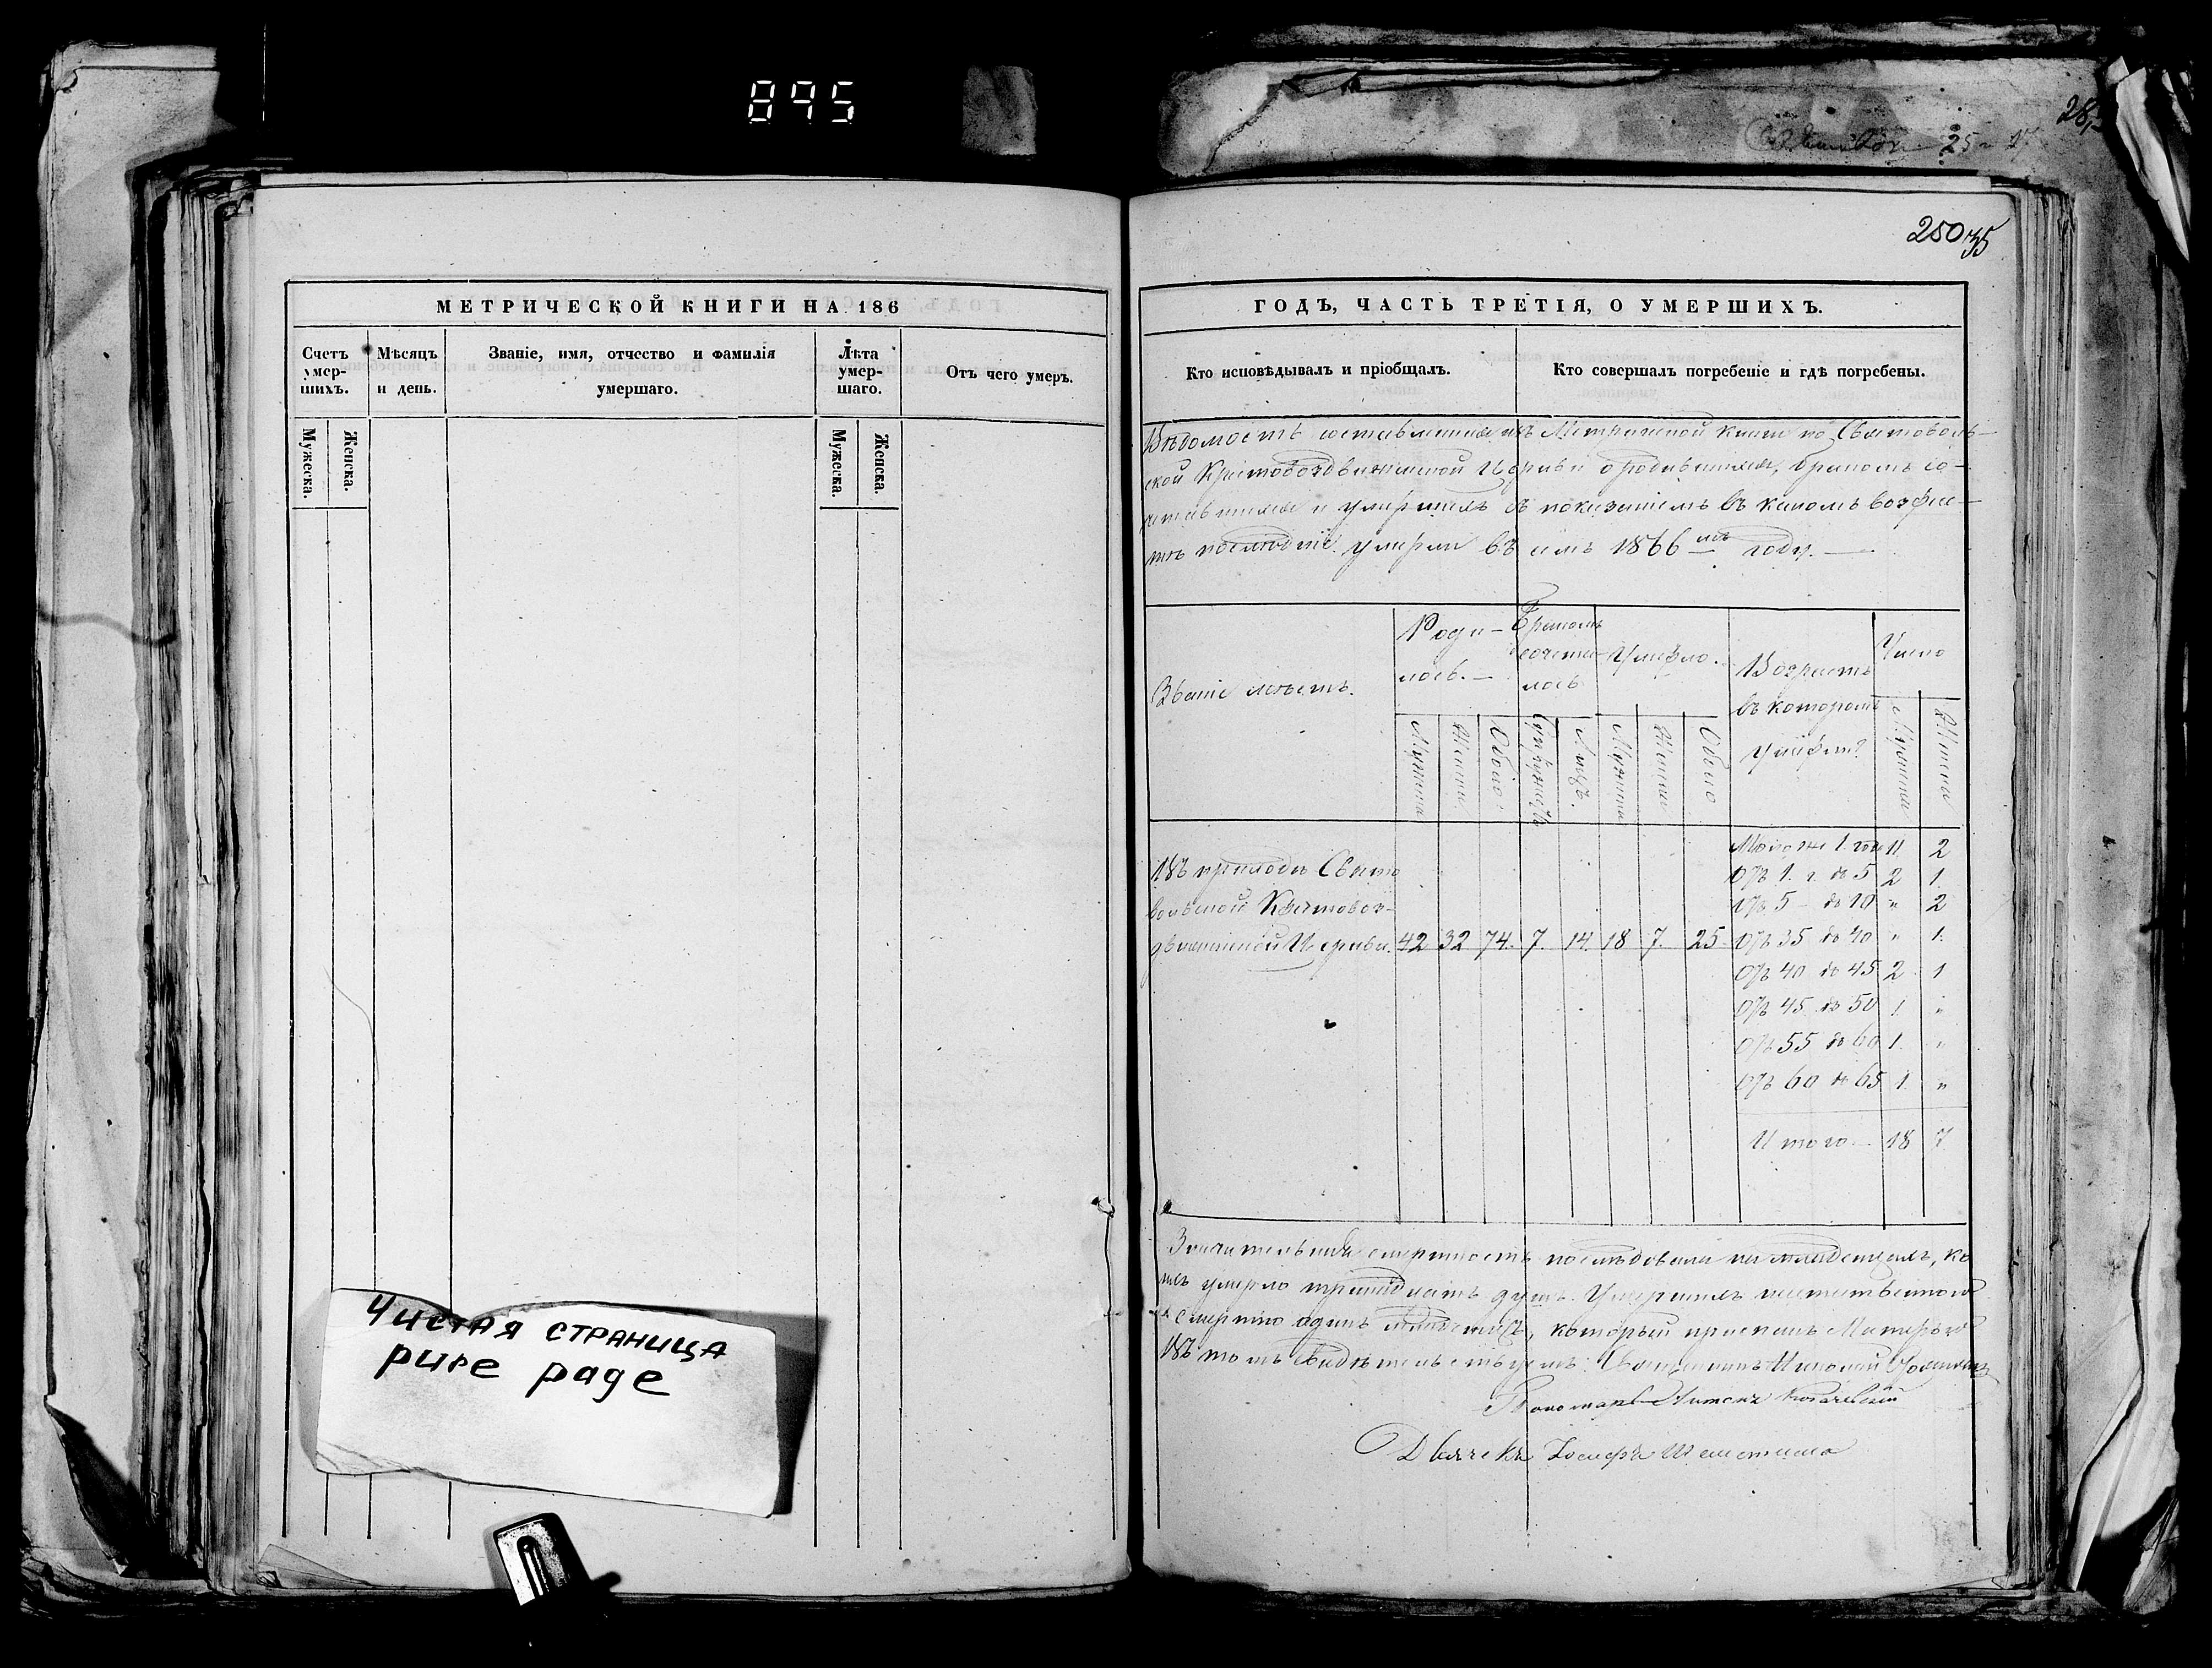 895
28
25
250 35
МЕТРИЧЕСКОЙ КНИГИ НА 186
Счетъ умер-шихъ.
Мѣсяцъ и день.
Званіе, имя, отчество и фамилія умершаго.
Лѣта умер-шаго.
Отъ чего умеръ.
Мужеска.
Женска.
Мужеска.
Женска.
Чистая страница
pure page
ГОДЪ, ЧАСТЬ ТРЕТІЯ, О УМЕРШИХЪ.
Кто исповѣдывалъ и пріобщалъ.
Кто совершалъ погребеніе и гдѣ погребены.
Вѣдомость составленная изъ Метрической книги по Святоволь-
ской Крестовоздвиженской Церкви о родившихся, бракомъ со-
четавшихся и умершихъ съ показаніемъ въ какомъ возрас-
тѣ послѣдніе умерли въ семъ 1866 мъ году.
Званіе мѣстъ.
Роди-
лось.
Бракомъ
сочета-
лось
Умерло.
Возрастъ
въ которомъ
Число
Мужеска
Женска
Обоего
Лицъ.
Мужеска
Женска
Обоего
Мужеска
Женска
Моложе 1. года 11. 2
Въ приходѣ Свято
Отъ 1. г. до 5 2 1.
вольской Крестовоз-
Отъ 5 до 10 " 2
движенской Церкви. 42 32 74. 7. 14. 18 7. 25. Отъ 35 до 40 " 1.
Отъ 40 до 45 2 1
Отъ 45 до 50 1 "
Отъ 55 до 60 1. "
Отъ 60 до 65 1. "
Итого 18 7
Значительная смертность послѣдовала на младенцахъ, ко
ихъ умерло тринадцать душъ. Умершихъ неестественною
смертію одинъ который
Въ томъ свидѣтельствуемъ: Священникъ Николай
Пономарь Антонъ
Дьячекъ Іосифъ